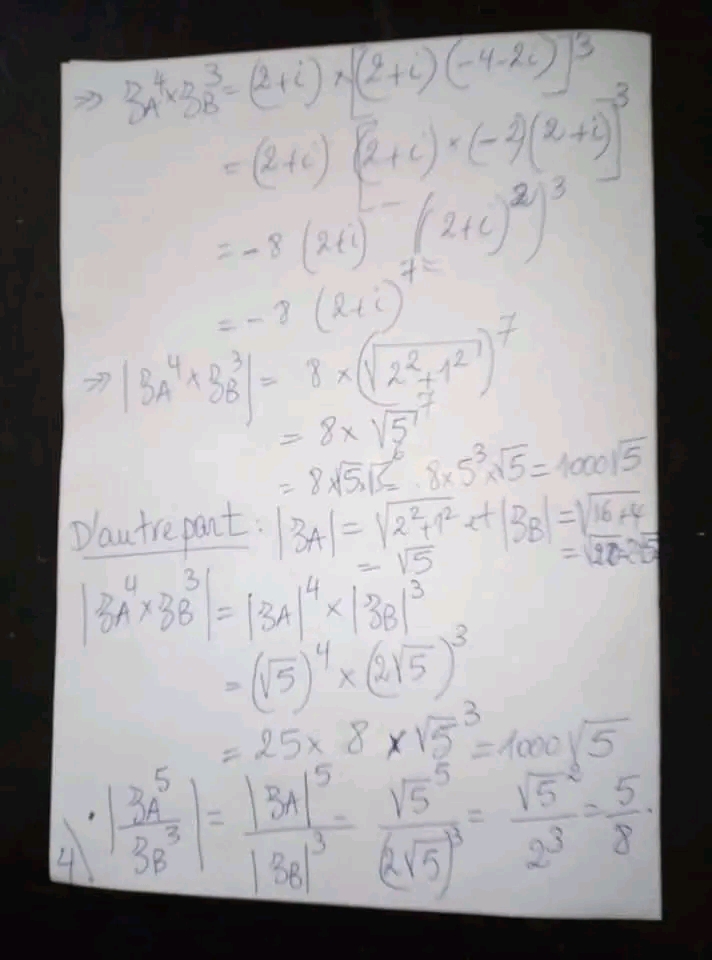 => 3A^4 × 3B^3 = (2+i) × [(2+i)(-4-2i)]^3
= (2+i) [(2+i) × (-2)(2+i)]^3
= -8 (2+i) ((2+i)^2)^3
= -8 (2+i)^7
=> |3A^4 × 3B^3| = 8 × (√(2^2+1^2))^7
= 8 × √5^7
= 8 × √5 × √5^6 = 8 × 5^3 × √5 = 1000√5
D'autre part : |3A| = √(2^2+1^2) et |3B| = √(16+4)
= √5 = √20 = 2√5
|3A^4 × 3B^3| = |3A|^4 × |3B|^3
= (√5)^4 × (2√5)^3
= 25 × 8 × √5^3 = 1000√5
4) • |3A^5 / 3B^3| = |3A|^5 / |3B|^3 = √5^5 / (2√5)^3 = √5^2 / 2^3 = 5/8.